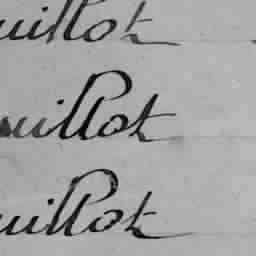 uillot
uillot
uillot